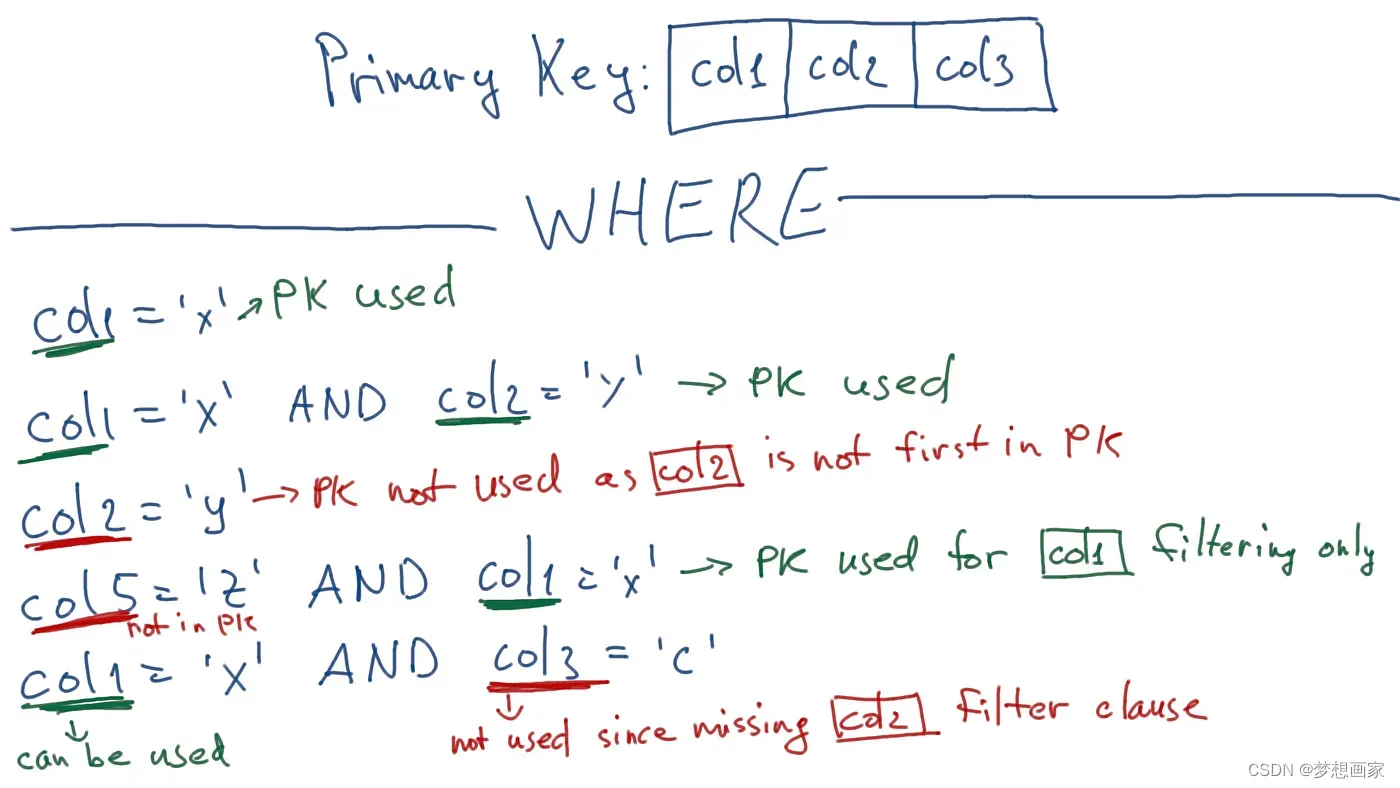 Primary Key: col1 col2 col3
WHERE
col1 = 'x' → PK used
col1 = 'x' AND col2 = 'y' → PK used
col2 = 'y' → PK not used as col2 is not first in PK
col5 = 'z' AND col1 = 'x' → PK used for col1 filtering only
not in PK
col1 = 'x' AND col3 = 'c'
not used since missing col2 filter clause
can be used
CSDN @梦想画家